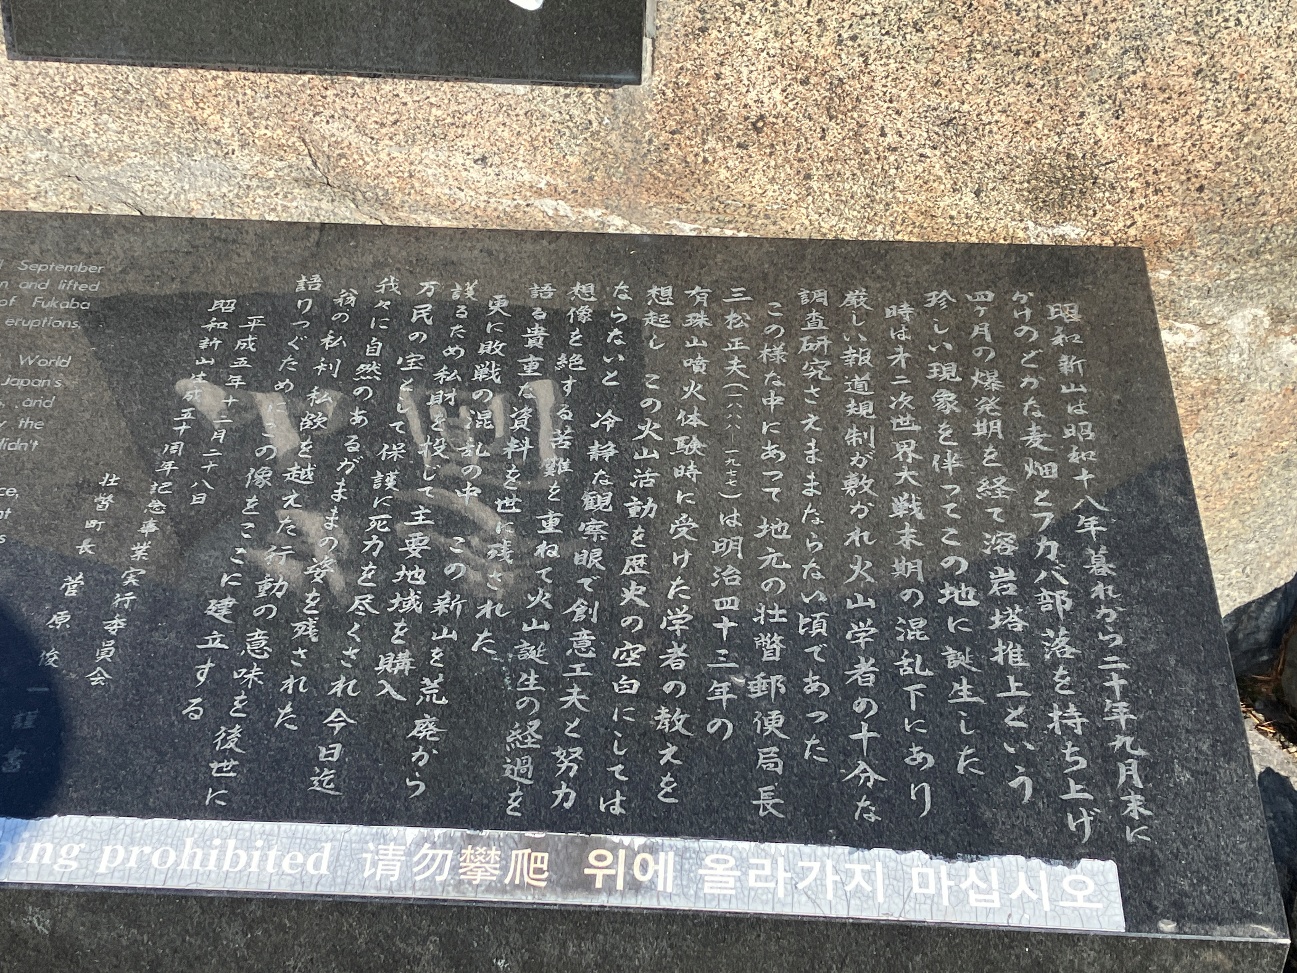 昭和新山は昭和十八年暮れから二十年九月末に
かけのどかな麦畑とフカバ部落を持ち上げ
四ヶ月の爆発期を経て溶岩塔推上という
珍しい現象を伴ってこの地に誕生した
時は才二次世界大戦末期の混乱下にあり
厳しい報道規制が敷かれ火山学者の十分な
調査研究さえままならない頃であった
この様な中にあって地元の壮瞥郵便局長
三松正夫(一八八八 一九七七)は明治四十三年の
有珠山噴火体験時に受けた学者の教えを
想起し この火山活動を歴史の空白にしては
ならないと 冷静な観察眼で創意工夫と努力
想像を絶する苦難を重ねて火山誕生の経過を
語る貴重な資料を世に残された
更に敗戦の混乱の中 この新山を荒廃から
護るため私財を投じて主要地域を購入
万民の宝として保護に死力を尽くされ今日迄
我々に自然のあるがままの姿を残された
我の私利私欲を越えた行動の意味を後世に
語りつぐためにこの像をここに建立する
平成五年十二月二十八日
昭和新山生成五十周年記念事業実行委員会
壮瞥町長 菅原俊一 謹書
September
n and lifted
of Fukaba
eruptions.
World
Japan's
, and
y the
didn't
ce,
nt
s
ing prohibited 请勿攀爬 위에 올라가지 마십시오